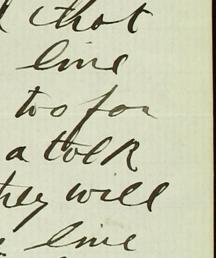 that
line
too for
a talk
they will
line